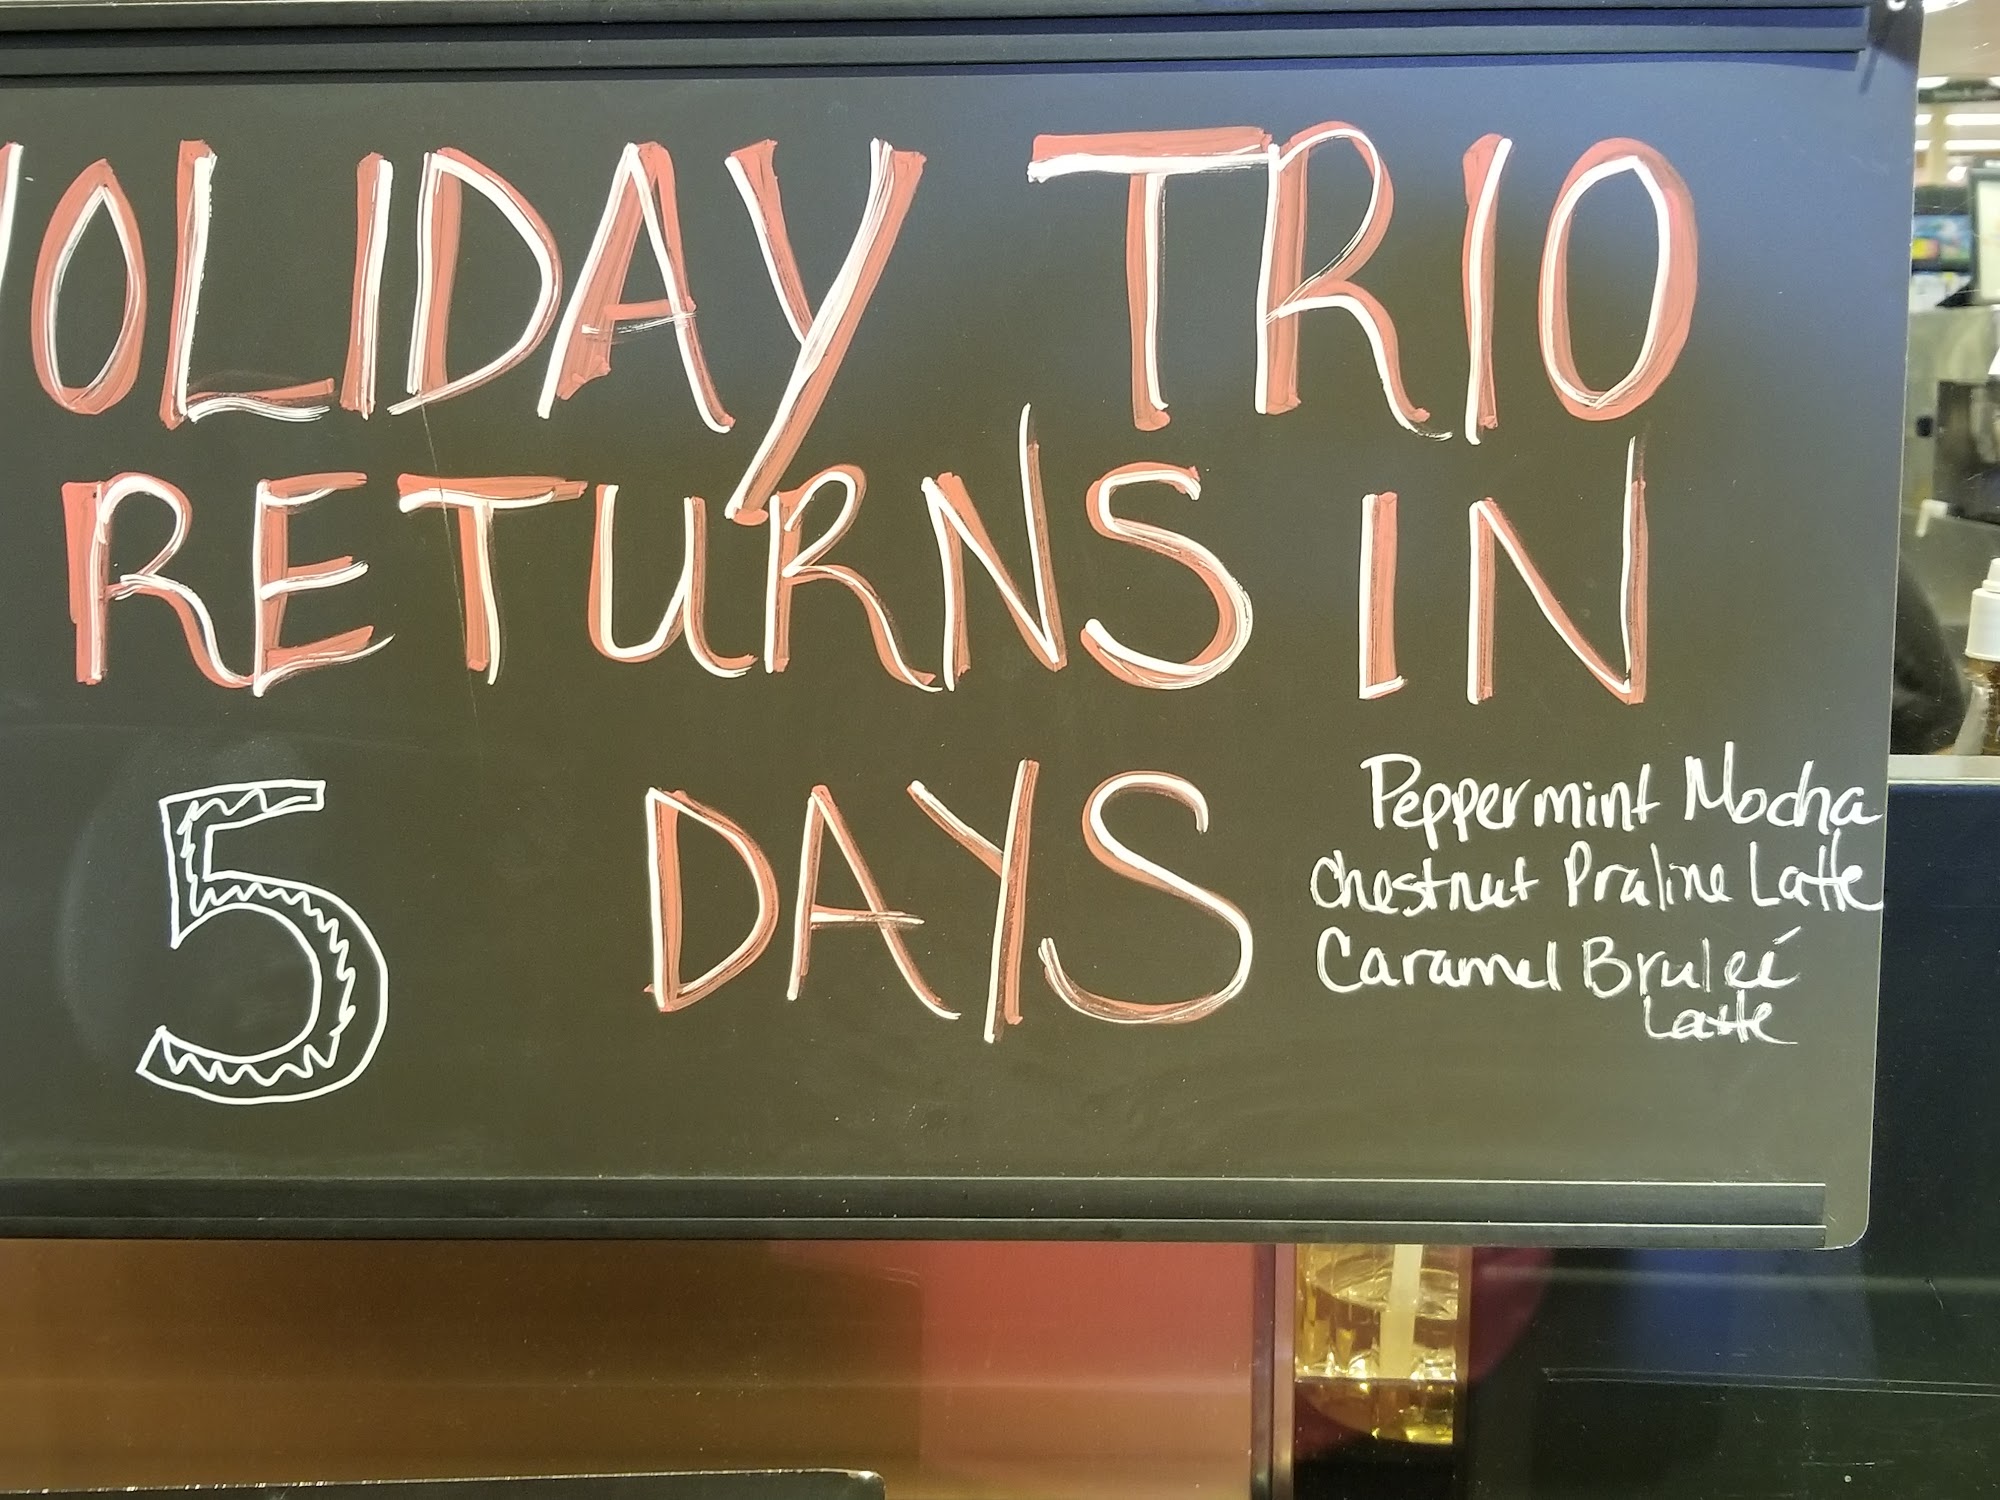 HOLIDAY TRIO
RETURNS IN
5 DAYS
Peppermint Mocha
Chestnut Praline Latte
Caramel Bruleé
Latte